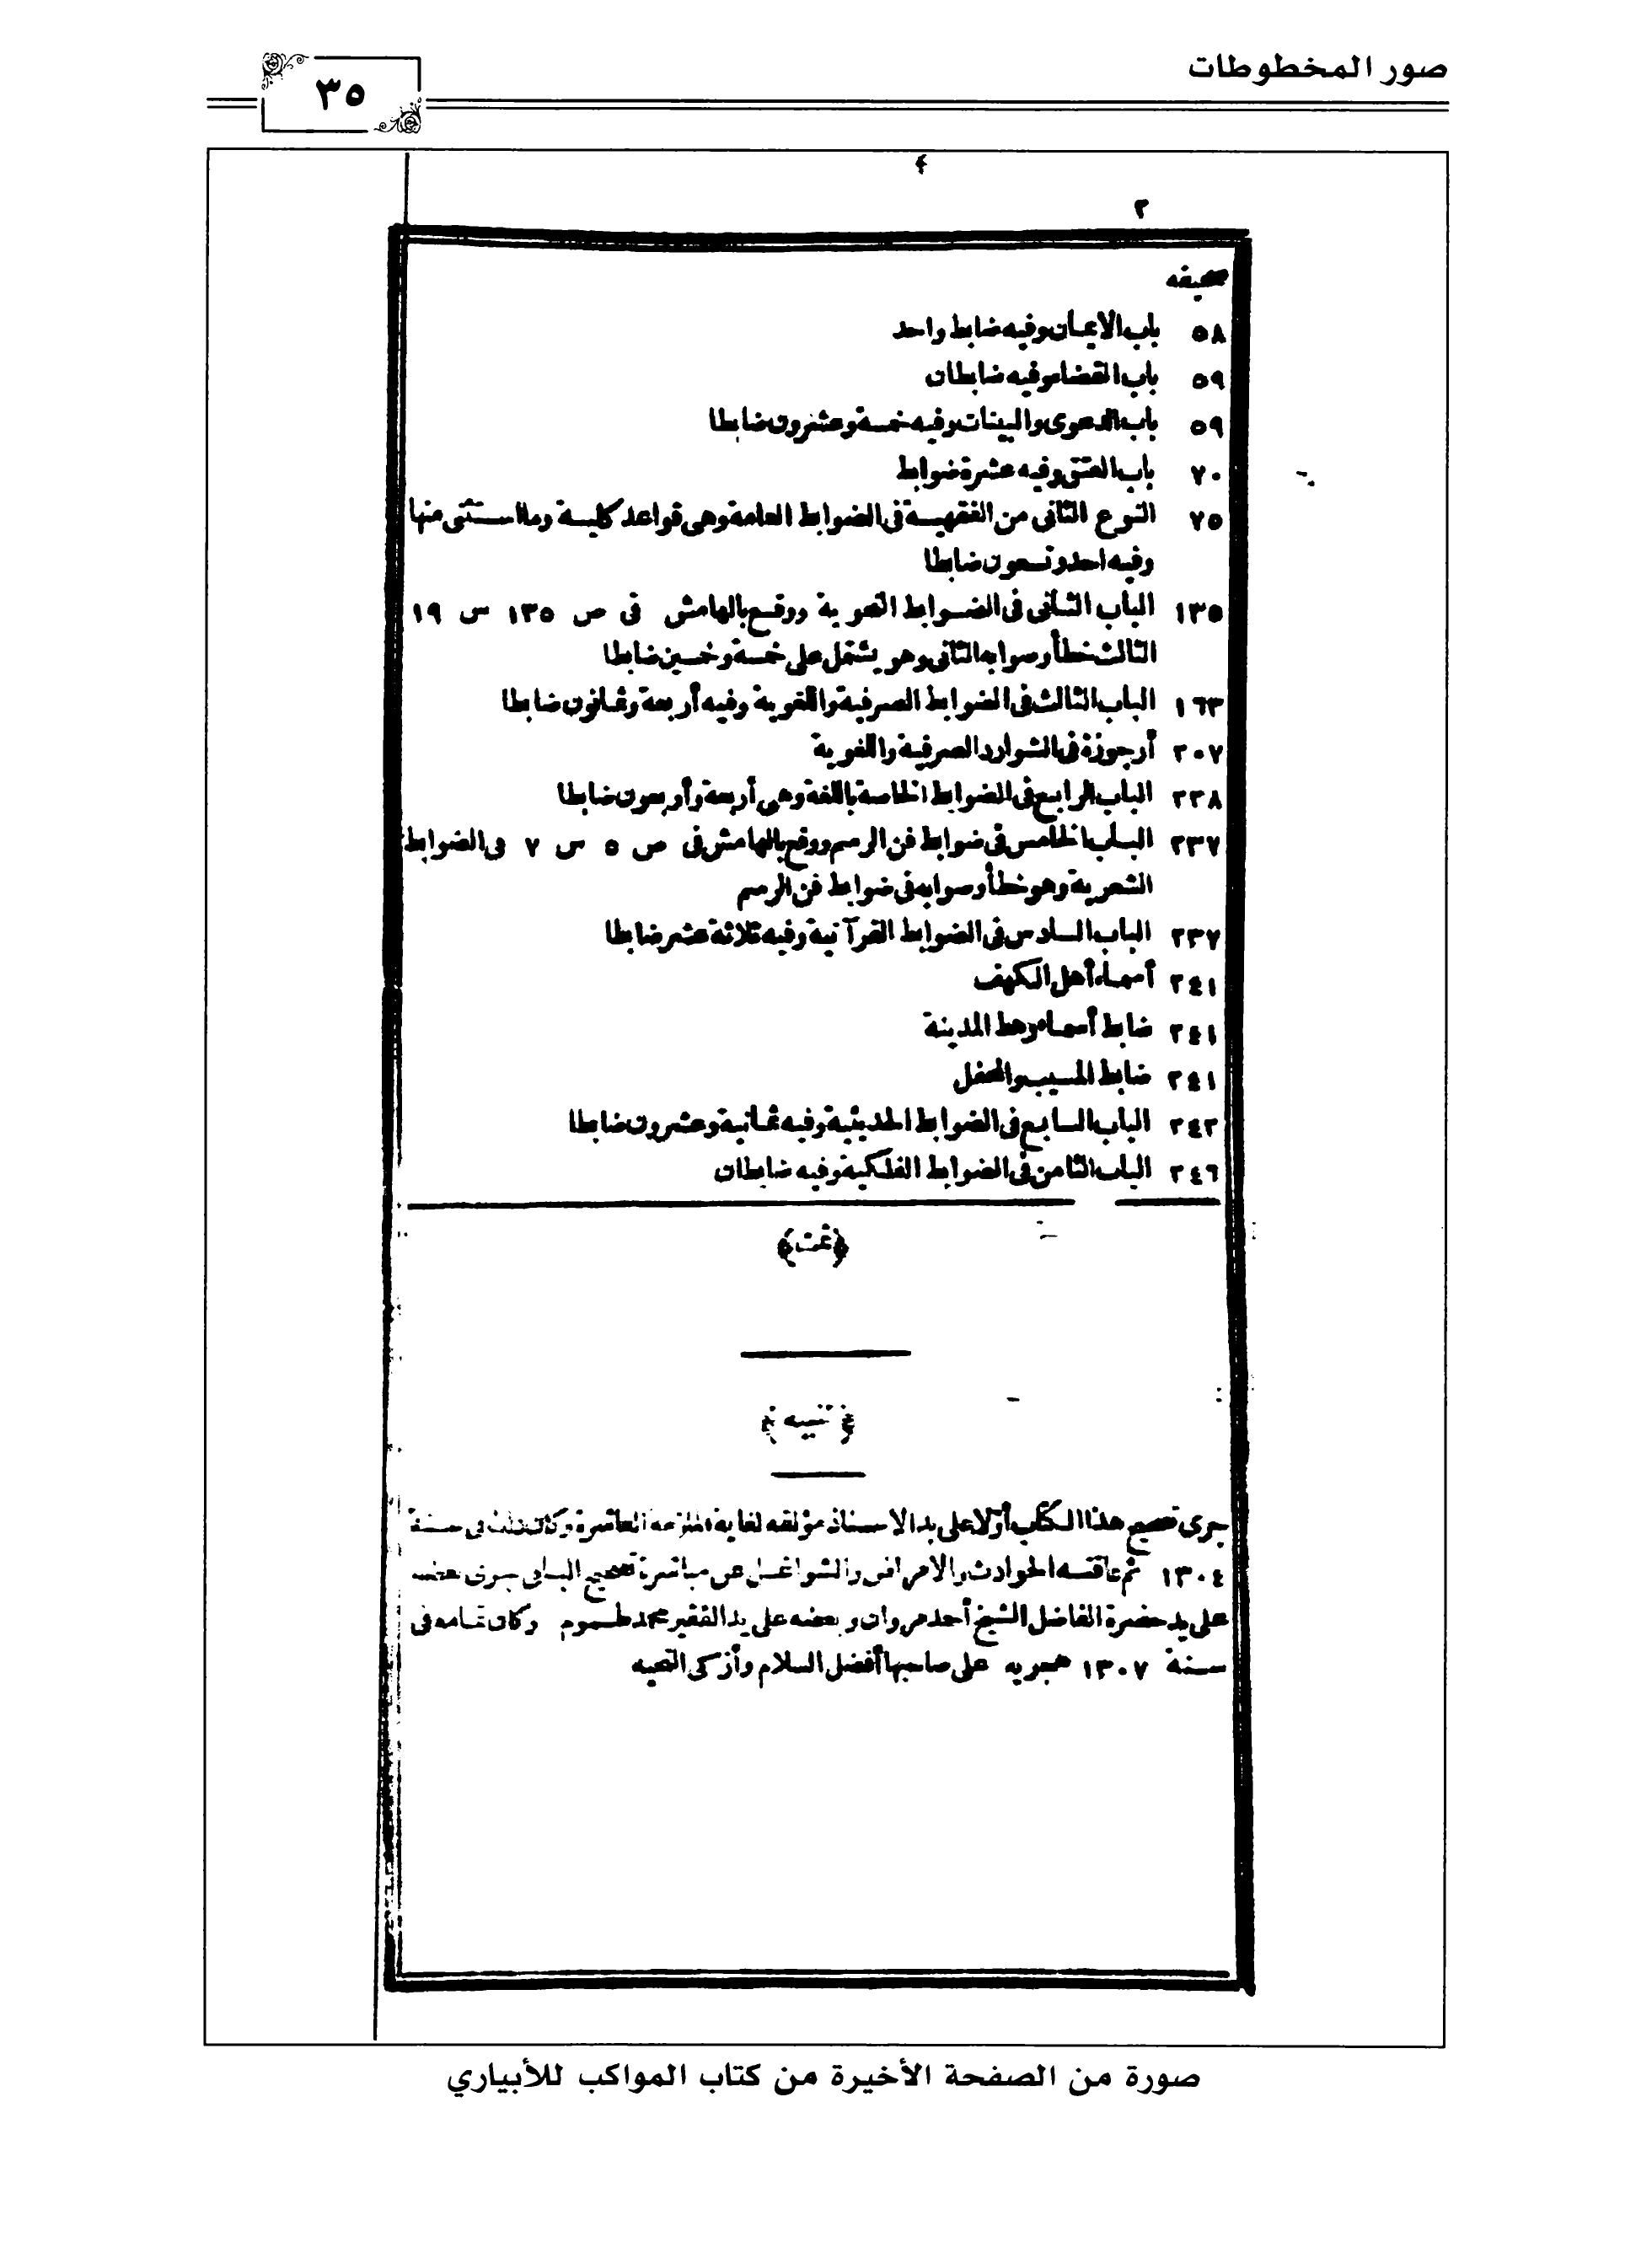 صور المخطوطات
٣٥
٣
صحيفه
٥٨ باب الايمان وفيه ضابط واحد
٥٩ باب القضاء وفيه ضابطان
٥٩ باب الدعوى والبينات وفيه خمسة وعشرون ضابطا
٧٠ باب العتق وفيه عشرة ضوابط
٧٥ النوع الثانى من الفقهية فى الضوابط العامة وهى قواعد كلية وما استثنى منها
وفيه احد وتسعون ضابطا
١٣٥ الباب الثانى فى الضوابط النحوية ووقع بالهامش فى ص ١٣٥ س ١٩
الثالث خطأ وصوابه الثانى وهو يشتمل على خمسة وخمسين ضابطا
١٦٣ الباب الثالث فى الضوابط الصرفية واللغوية وفيه أربعة وثمانون ضابطا
٢٠٧ أرجوزة فى الشوارد الصرفية واللغوية
٢٢٨ الباب الرابع فى الضوابط الخاصة باللغة وهى أربعة وأربعون ضابطا
٢٣٧ الباب الخامس فى ضوابط فن الرسم ووقع بالهامش فى ص ٥ س ٧ فى الضوابط
الشعرية وهو خطأ وصوابه فى ضوابط فن الرسم
٢٣٧ الباب السادس فى الضوابط القرآنية وفيه ثلاثة عشر ضابطا
٢٤١ أسماء أهل الكهف
٢٤١ ضابط أسماء رهط المدينة
٢٤١ ضابط المسيب والمغفل
٢٤٢ الباب السابع فى الضوابط الحديثية وفيه ثمانية وعشرون ضابطا
٢٤٦ الباب الثامن فى الضوابط الفلكية وفيه ضابطان
﴿تمت﴾
﴿تنبيه﴾
جرى تصحيح هذا الكتاب أولا على يد الاستاذ مؤلفه لغاية الملزمة العاشرة وكان ذلك فى سنة
١٣٠٤ ثم عاقته الحوادث والامراض والشواغل عن مباشرة تصحيح الباقى فجرى بعضه
على يد حضرة الفاضل الشيخ أحمد مروان وبعضه على يد الفقير محمد طموم وكان تمامه فى
سنة ١٣٠٧ هجريه على صاحبها أفضل السلام وأزكى التحيه
صورة من الصفحة الأخيرة من كتاب المواكب للأبياري